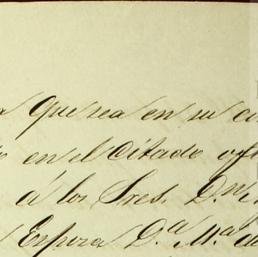 que sea en su
en el Citado
á los Sres. Dn.
Espoza D.a M.a de